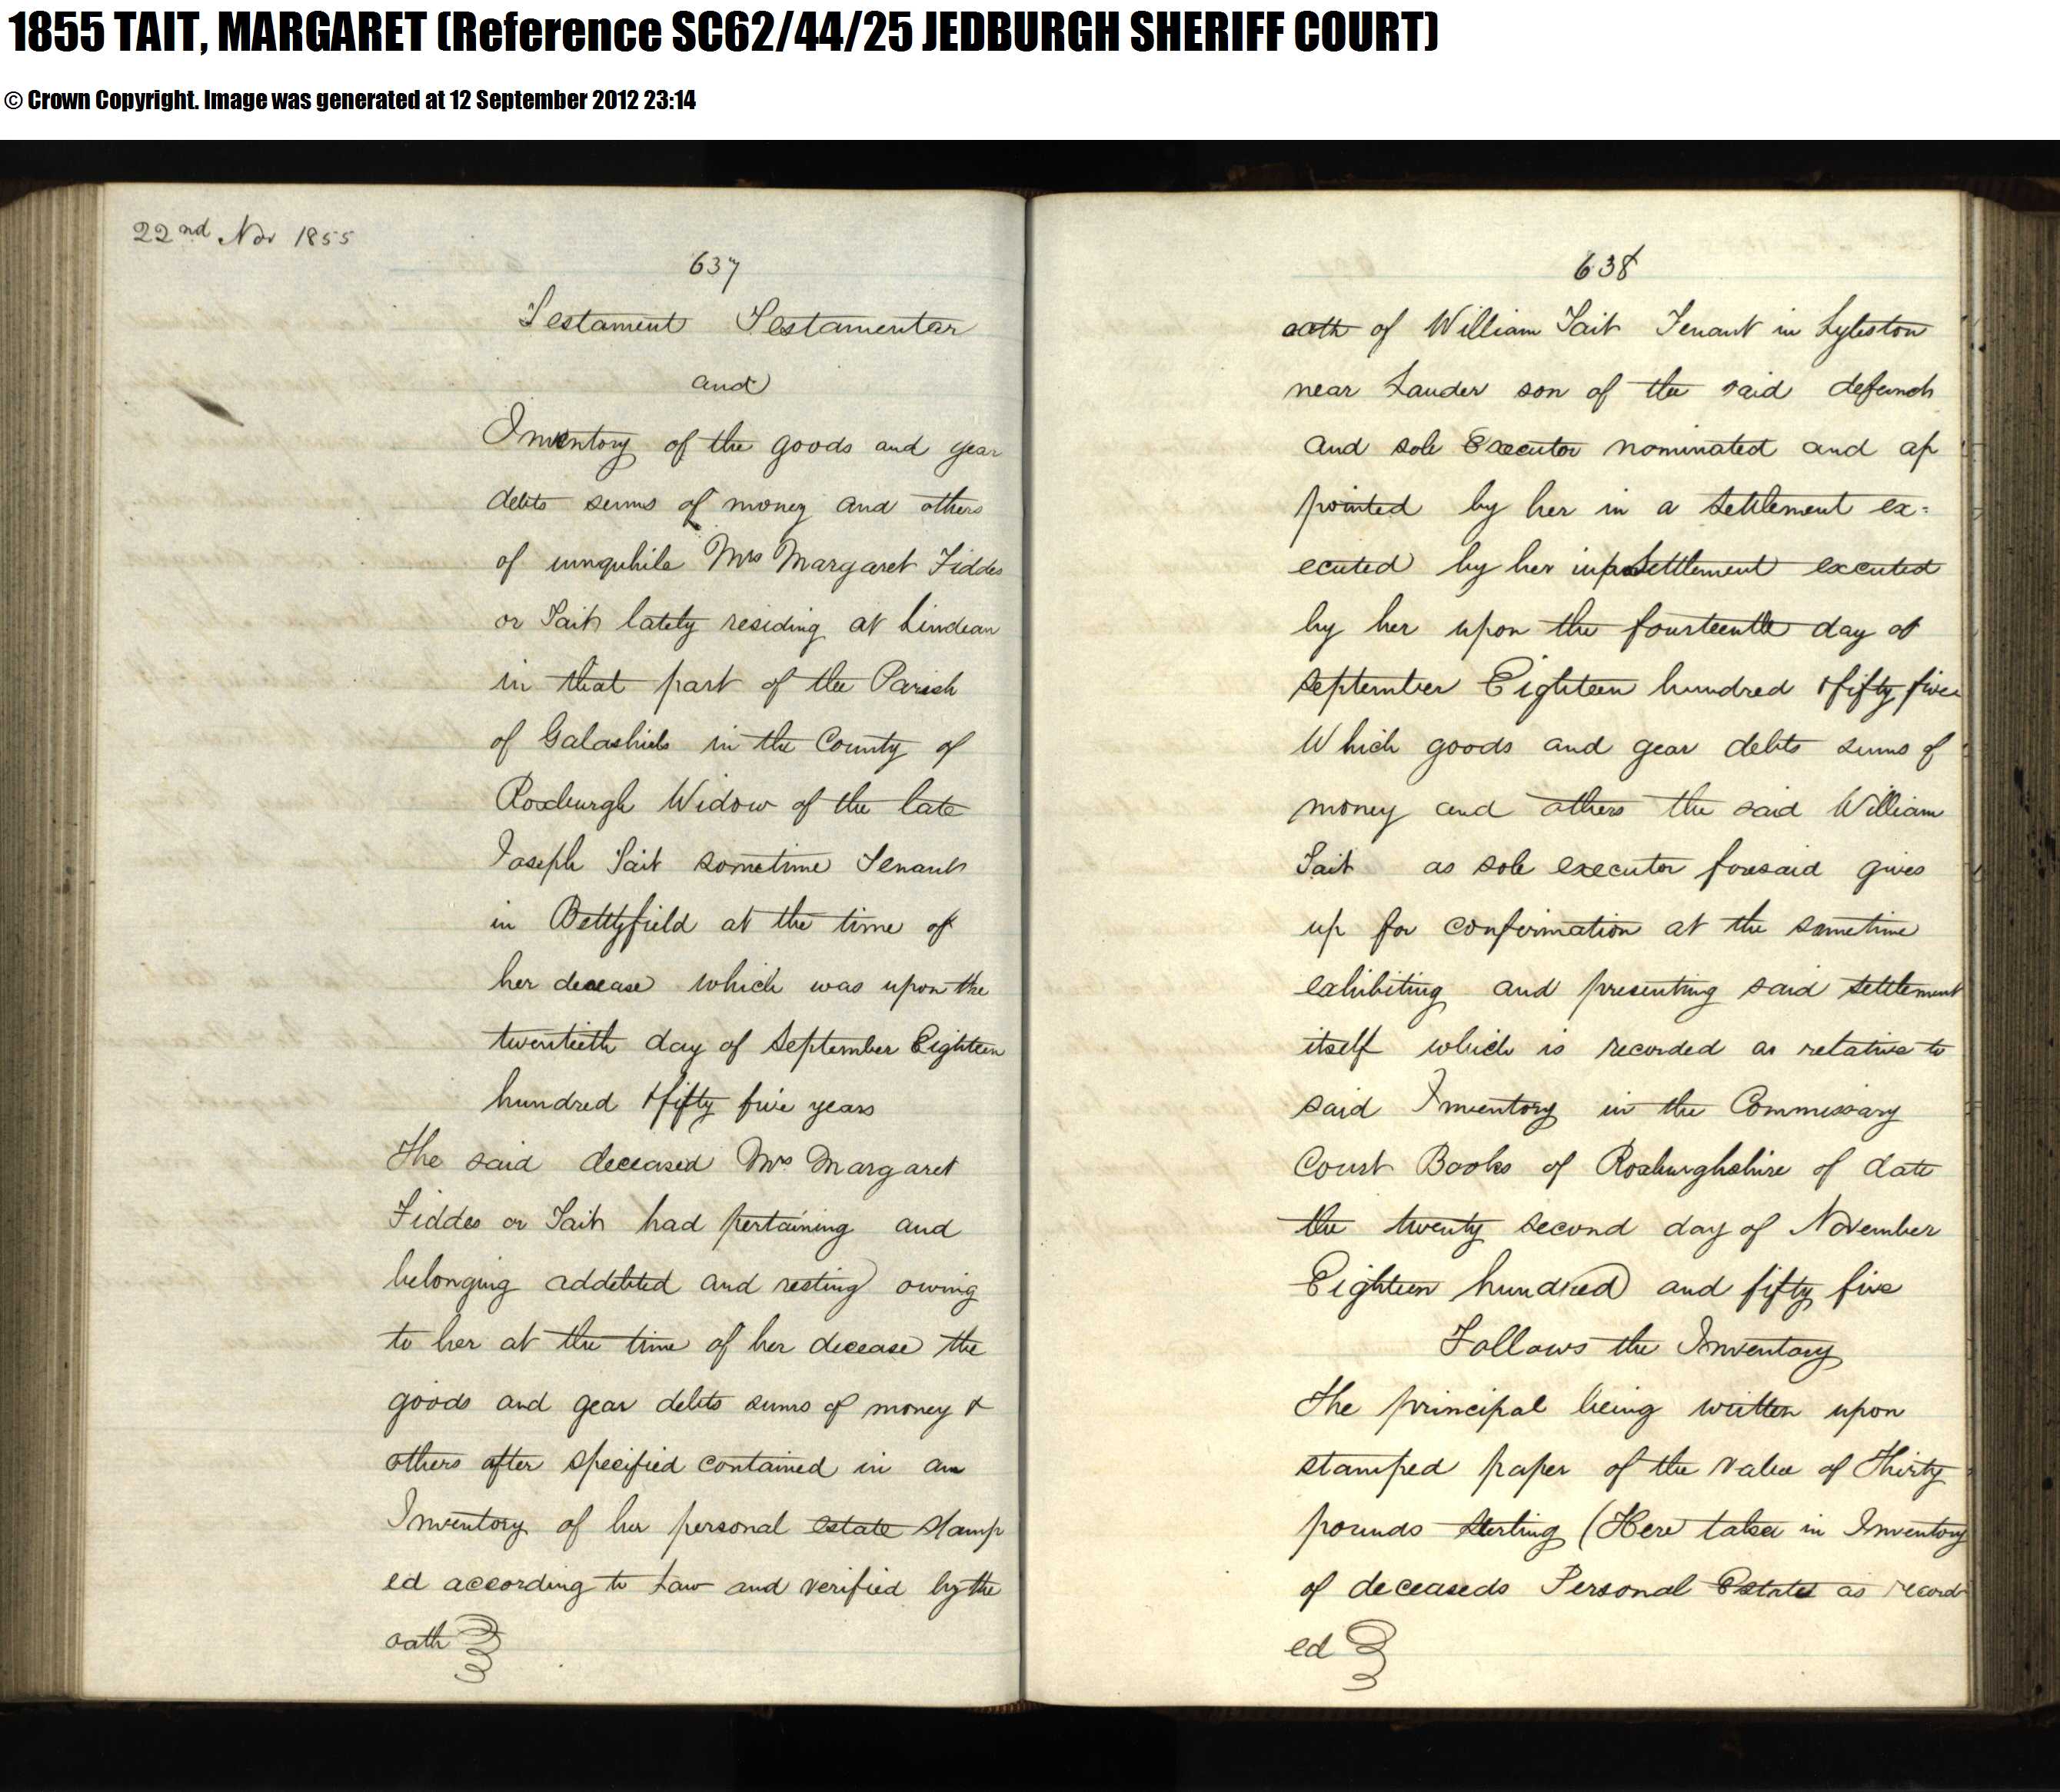 1855 TAIT, MARGARET (Reference SC62/44/25 JEDBURGH SHERIFF COURT)
© Crown Copyright. Image was generated at 12 September 2012 23:14
22nd Nov 1855
637
Testament Testamentar
and
Inventory of the goods and gear
debts sums of money and others
of umquhile Mrs Margaret Fiddes
or Tait lately residing at Lindean
in that part of the Parish
of Galashiels in the County of
Roxburgh Widow of the late
Joseph Tait sometime Tenant
in Bettyfield at the time of
her decease which was upon the
twentieth day of September Eighteen
hundred & fifty five years
The said deceased Mrs Margaret
Fiddes or Tait had pertaining and
belonging addebted and resting owing
to her at the time of her decease the
goods and gear debts sums of money &
others after specified contained in an
Inventory of her personal estate stamp
ed according to Law and verified by the
oath
638
oath of William Tait Tenant in Lyleston
near Lauder son of the said defunct
and sole Executor nominated and ap
pointed by her in a settlement ex=
ecuted by her in settlement executed
by her upon the fourteenth day of
September Eighteen hundred & fifty five
Which goods and gear debts sums of
money and others the said William
Tait as sole executor foresaid gives
up for confirmation at the sametime
exhibiting and presenting said settlement
itself which is recorded as relative to
said Inventory in the Commissary
Court Books of Roxburghshire of date
the twenty second day of November
Eighteen hundred and fifty five
Follows the Inventory
The principal being written upon
stamped paper of the value of Thirty
pounds sterling (Here take in Inventory
of deceaseds Personal Estate as record
ed